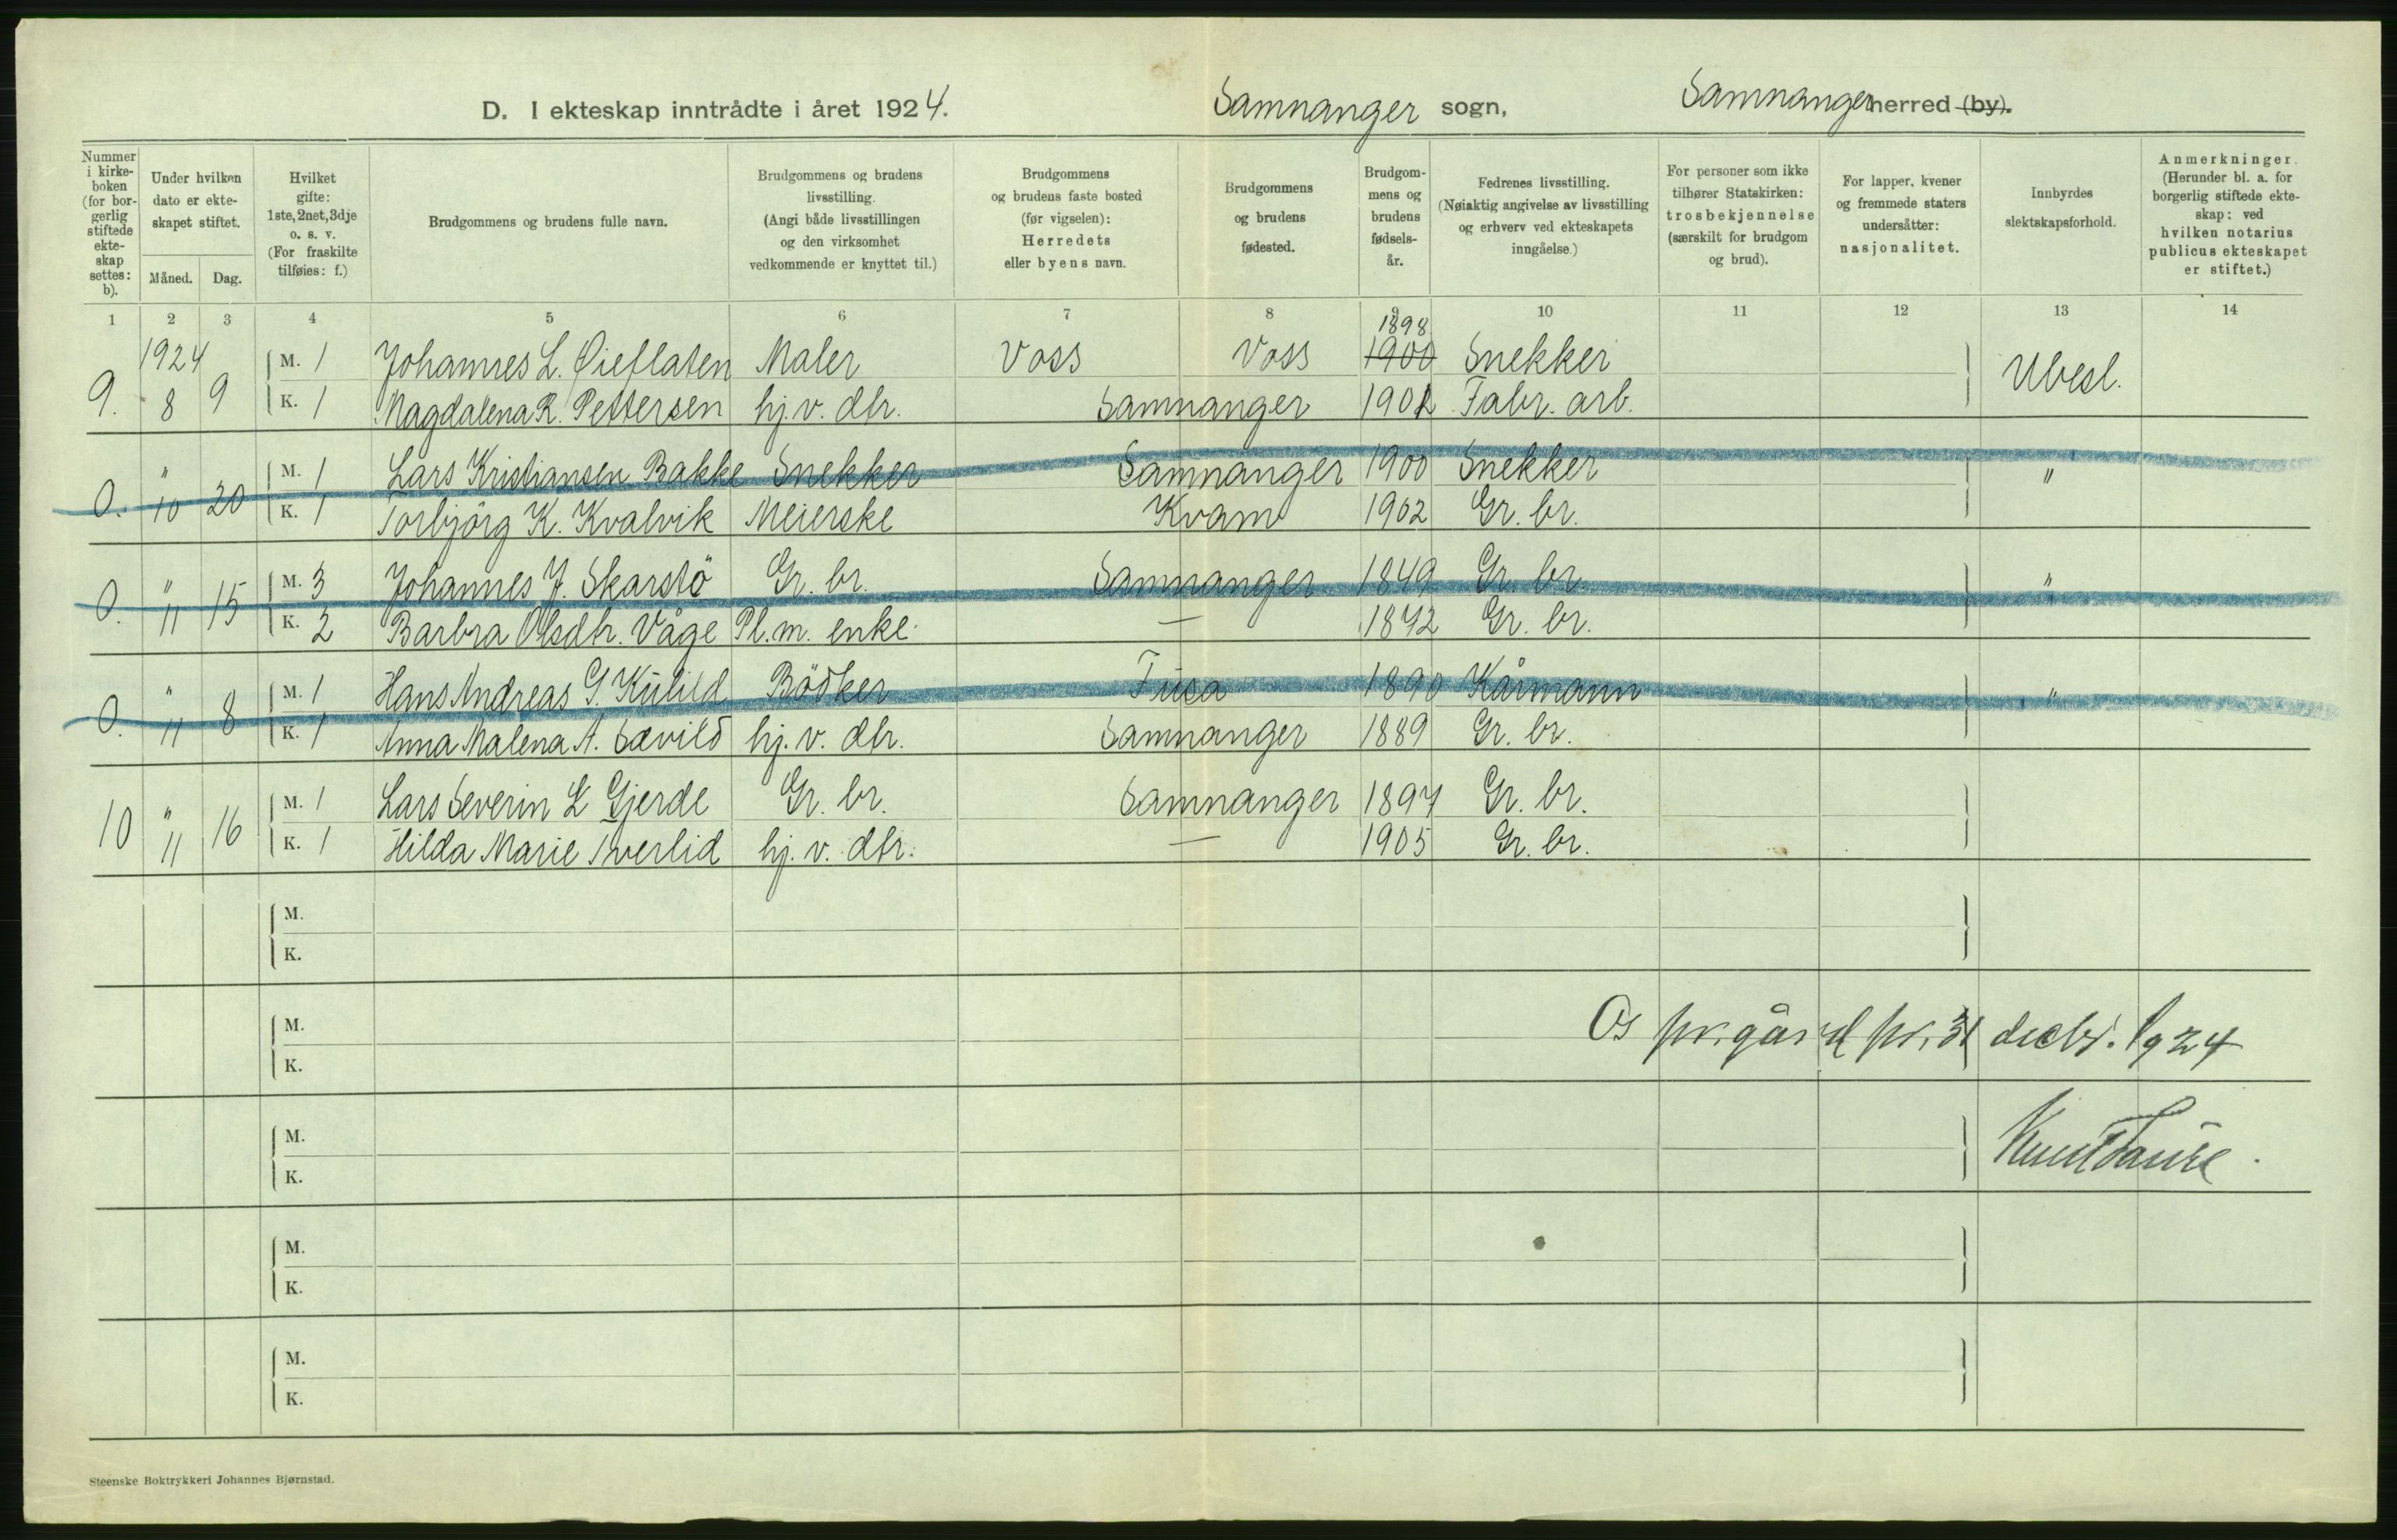 D. I ekteskap inntrådte i året 1924. Samnanger sogn, Samnanger herred (by).
Nummer i kirke-boken (for bor-gerlig stiftede ekte-skap settes: b).
Under hvilken dato er ekte-skapet stiftet.
Måned. Dag.
Hvilket gifte: 1ste, 2net, 3dje o. s. v. (For fraskilte tilføies: f.)
Brudgommens og brudens fulle navn.
Brudgommens og brudens livsstilling. (Angi både livsstillingen og den virksomhet vedkommende er knyttet til.)
Brudgommens og brudens faste bosted (før vigselen): Herredets eller byens navn.
Brudgommens og brudens fødested.
Brudgom-mens og brudens fødsels-år.
Fedrenes livsstilling. (Nøiaktig angivelse av livsstilling og erhverv ved ekteskapets inngåelse.)
For personer som ikke tilhører Statskirken: trosbekjennelse (særskilt for brudgom og brud).
For lapper, kvener og fremmede staters undersåtter: nasjonalitet.
Innbyrdes slektskapsforhold.
Anmerkninger. (Herunder bl. a. for borgerlig stiftede ekte-skap: ved hvilken notarius publicus ekteskapet er stiftet.)
1 2 3 4 5 6 7 8 9 10 11 12 13 14
1924 1898
M. 1 Johannes L. Øieflaten Maler Voss Voss 1900 Snekker
9. 8 9 Ubesl.
K. 1 Magdalena R. Pettersen hj. v. dtr. Samnanger 1901 Fabr. arb.
M. 1 Lars Kristiansen Bakke Snekker Samnanger 1900 Snekker
0. " 10 20 "
K. 1 Torbjörg K. Kvalvik Meierske Kvam 1902 Gr. br.
M. 3 Johannes J. Skarstö Gr. br. Samnanger 1849 Gr. br.
0. " 11 15 "
K. 2 Barbra Olsdtr. Våge Pl. m. enke — 1872 Gr. br.
M. 1 Hans Andreas G. Kulild Bödker Fusa 1890 Kårmann
0. " 11 8 "
K. 1 Anna Malena A. Sævild hj. v. dtr. Samnanger 1889 Gr. br.
M. 1 Lars Severin L Gjerde Gr. br. Samnanger 1897 Gr. br.
10 " 11 16
K. 1 Hilda Marie Tverlid hj. v. dtr. — 1905 Gr. br.
M.
K.
M.
Os pr.gård pr. 31 decbr. 1924
K.
M.
K.
M.
K.
M.
K.
Steenske Boktrykkeri Johannes Bjørnstad.